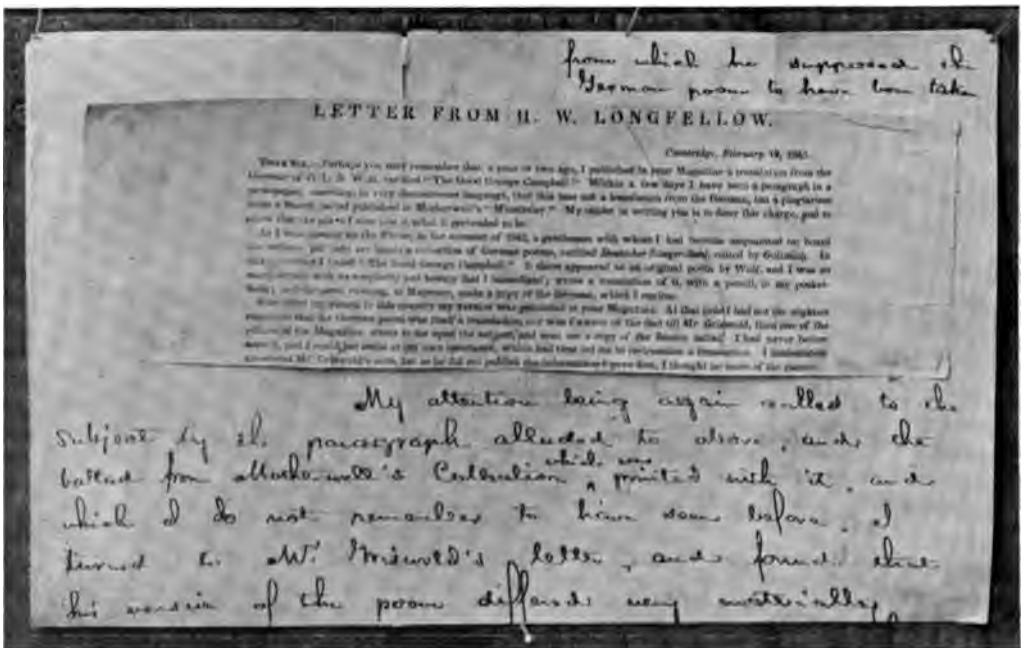 from which he suppressed the
German poem to have been taken
LETTER FROM H. W. LONGFELLOW.
Cambridge, February 19, 1845.
Perhaps you may remember that, a year or two ago, I published in your Magazine a translation from the
German of O. L. B. Wolf, entitled "The Good George Campbell." Within a few days I have seen a paragraph in a
newspaper, asserting, in very discourteous language, that this was not a translation from the German, but a plagiarism
from a Scotch ballad published in Motherwell's "Minstrelsy." My object in writing you is to deny this charge, and to
show that the poem I sent you is what it pretended to be.
As I was passing up the Rhine, in the summer of 1842, a gentleman with whom I had become acquainted on board
the steamer put into my hands a collection of German poems, entitled Deutscher Sängersaal, edited by Gollmick. In
this I found "The Good George Campbell." It there appeared as an original poem by Wolf, and I was so
much with its simplicity and beauty that I immediately wrote a translation of it, with a pencil, in my pocket-
book, and the same evening, at Mayence, made a copy of the German, which I enclose.
my return to this country my version was published in your Magazine. At that time I had not the slightest
suspicion that the German poem was itself a translation, nor was I aware of the fact till Mr. Griswold, then one of the
editors of the Magazine, wrote to me upon the subject, and sent me a copy of the Scotch ballad. I had never before
seen it, and I could not smile at my own ignorance, which had thus led me to re-translate a translation. I immediately
answered Mr. Griswold's note, but as he did not publish the information I gave him, I thought no more of the matter.
My attention being again called to the
subject by the paragraph alluded to above, and the
ballad from Motherwell's Collection which was printed with it, and
which I do not remember to have seen before, I
turned to Mr. Griswold's letter, and found that
his version of the poem differed very materially